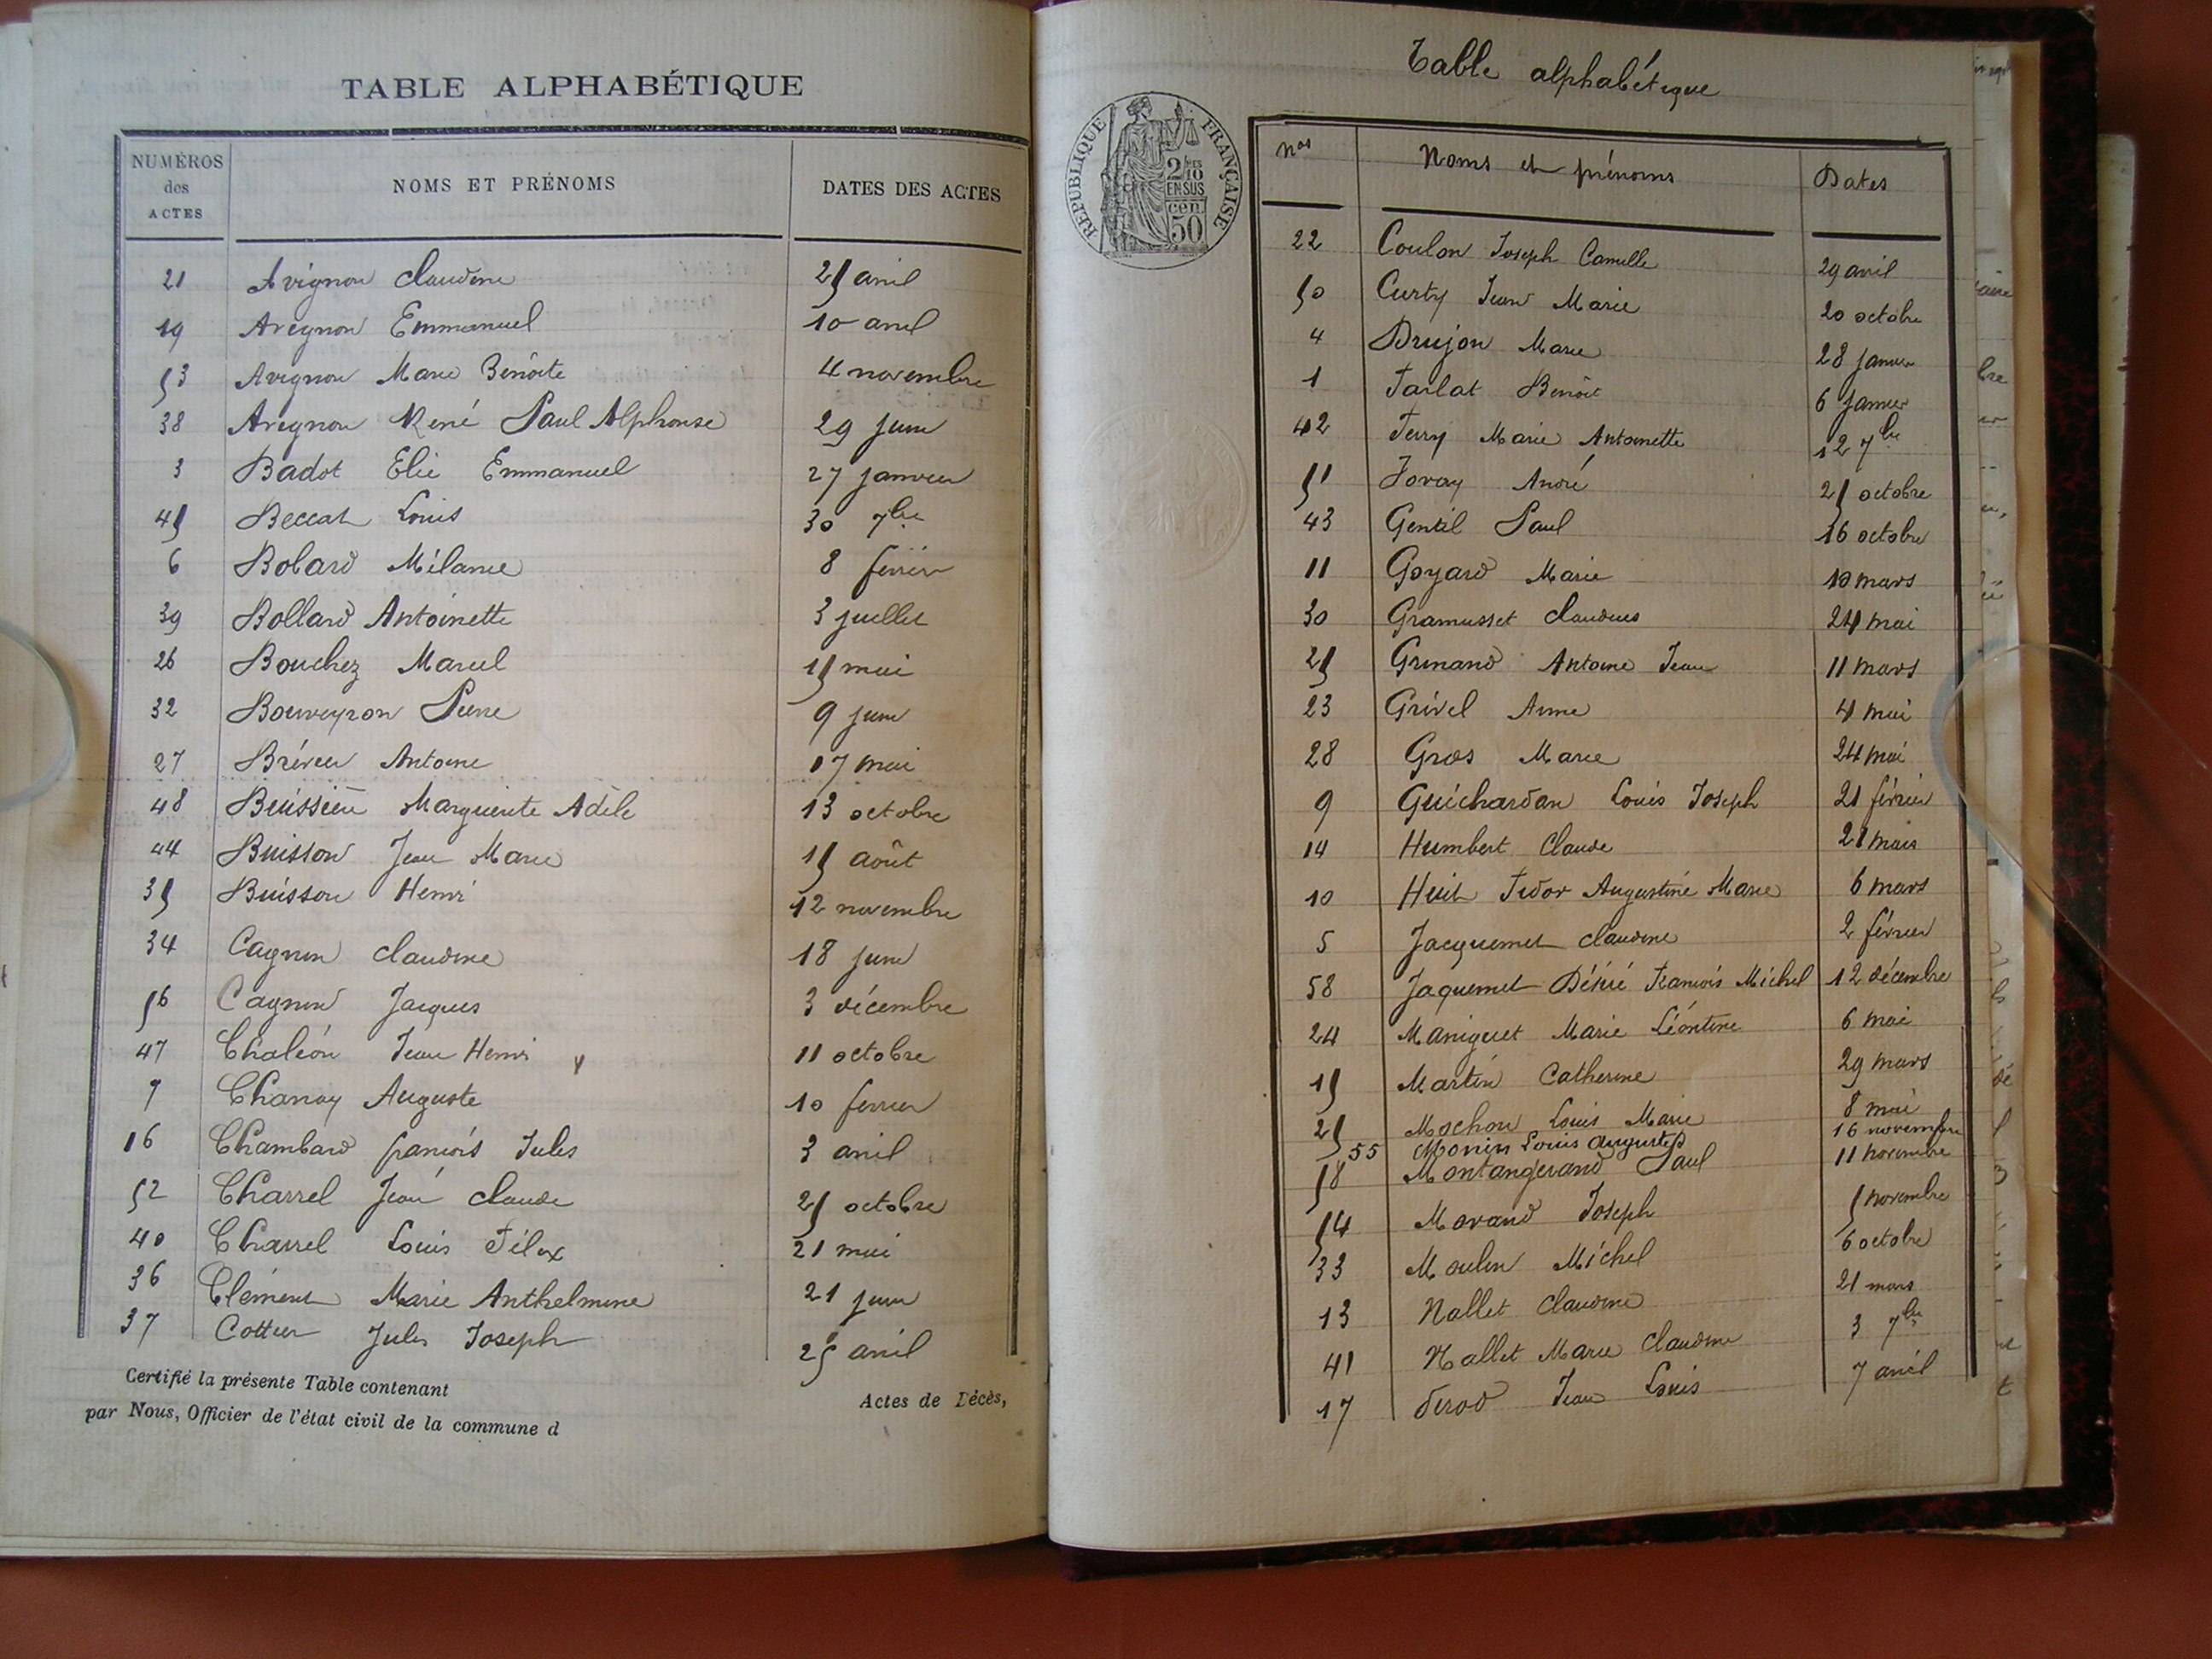 TABLE ALPHABÉTIQUE
NUMÉROS des ACTES NOMS ET PRÉNOMS DATES DES ACTES
21 Avignon Claudine 25 avril
19 Avignon Emmanuel 10 avril
53 Avignon Marie Benoite 4 novembre
38 Avignon René Paul Alphonse 29 juin
3 Badot Elie Emmanuel 27 janvier
45 Beccat Louis 30 7bre
6 Bobard Mélanie 8 février
39 Bollard Antoinette 3 juillet
26 Bouchez Marcel 15 mai
32 Bouveyron Pierre 9 juin
27 Antoine 17 mai
48 Buissière Marguerite Adèle 13 octobre
44 Buisson Jean Marie 15 août
35 Buisson Henri 12 novembre
34 Cagnin Claudine 18 juin
56 Cagnin Jacques 3 décembre
47 Chaléon Jean Henri 11 octobre
7 Chanay Auguste 10 février
16 Chambard françois Jules 3 avril
52 Charrel Jean Claude 25 octobre
40 Charrel Louis Félix 21 mai
36 Clément Marie Anthelmine 21 juin
37 Cottier Jules Joseph 25 avril
Certifié la présente Table contenant Actes de Décès,
par Nous, Officier de l'état civil de la commune d
Table alphabétique
RÉPUBLIQUE FRANÇAISE
2/10 EN SUS
cen. 50
Nos Noms et prénoms Dates
22 Coulon Joseph Camille 29 avril
50 Curty Jean Marie 20 octobre
4 Drujon Marie 28 janvier
1 Farlat Benoit 6 janvier
42 Ferry Marie Antoinette 12 7bre
51 Foray André 25 octobre
43 Gentil Paul 16 octobre
11 Goyard Marie 10 mars
30 Gramusset Claudius 24 mai
25 Grinand Antoine Jean 11 mars
23 Grivel Anne 4 mai
28 Gros Marie 24 mai
9 Guichardan Louis Joseph 21 février
14 Humbert Claude 21 mars
10 Huit Augustine Marie 6 mars
5 Jacquemet Claudine 2 février
58 Jaquemet Désiré François Michel 12 décembre
24 Maniguet Marie Léontine 6 mai
15 Martin Catherine 29 mars
25 Mochon Louis Marie 8 mai
55 Monin Louis Auguste 16 novembre
58 Montangerand Paul 11 novembre
54 Morand Joseph 5 novembre
33 Moulin Michel 6 octobre
13 Nallet Claudine 21 mars
41 Nallet Marie Claudine 3 7bre
17 Jean Louis 7 avril